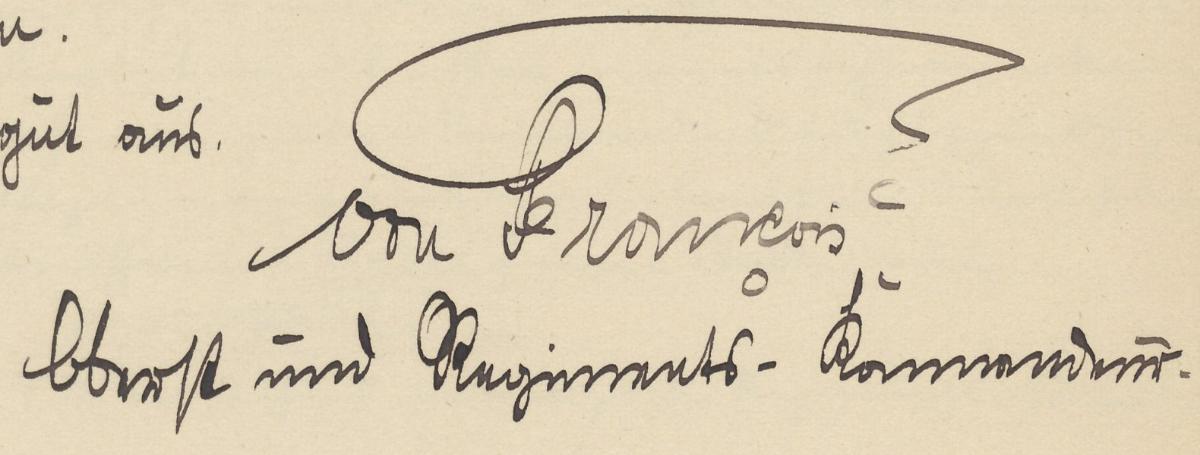 gut aus.
von François
Oberst und Regiments-Kommandeur.